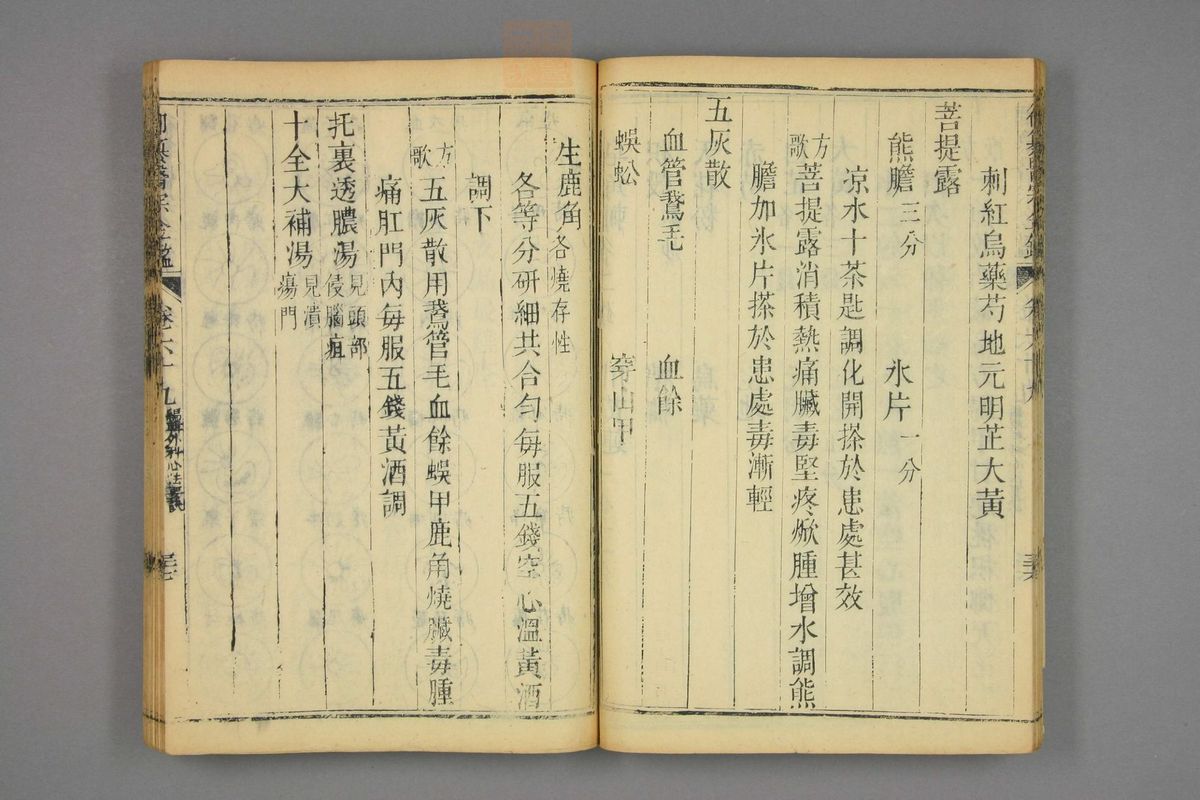 刺紅烏藥芍地元明芷大黃
菩提露
熊膽三分 氷片一分
凉水十茶匙調化開搽於患處甚效
方歌
菩提露消積熱痛臟毒堅疼焮腫增水調熊
膽加氷片搽於患處毒漸輕
五灰散
血管鵞毛 血餘
蜈蚣 穿山甲
生鹿角各燒存性
各等分研細共合勻每服五錢空心溫黃酒
調下
方歌
五灰散用鵞管毛血餘蜈甲鹿角燒臟毒腫
痛肛門內每服五錢黃酒調
托裏透膿湯見頭部
侵腦疽
十全大補湯見潰
瘍門
卷六十九